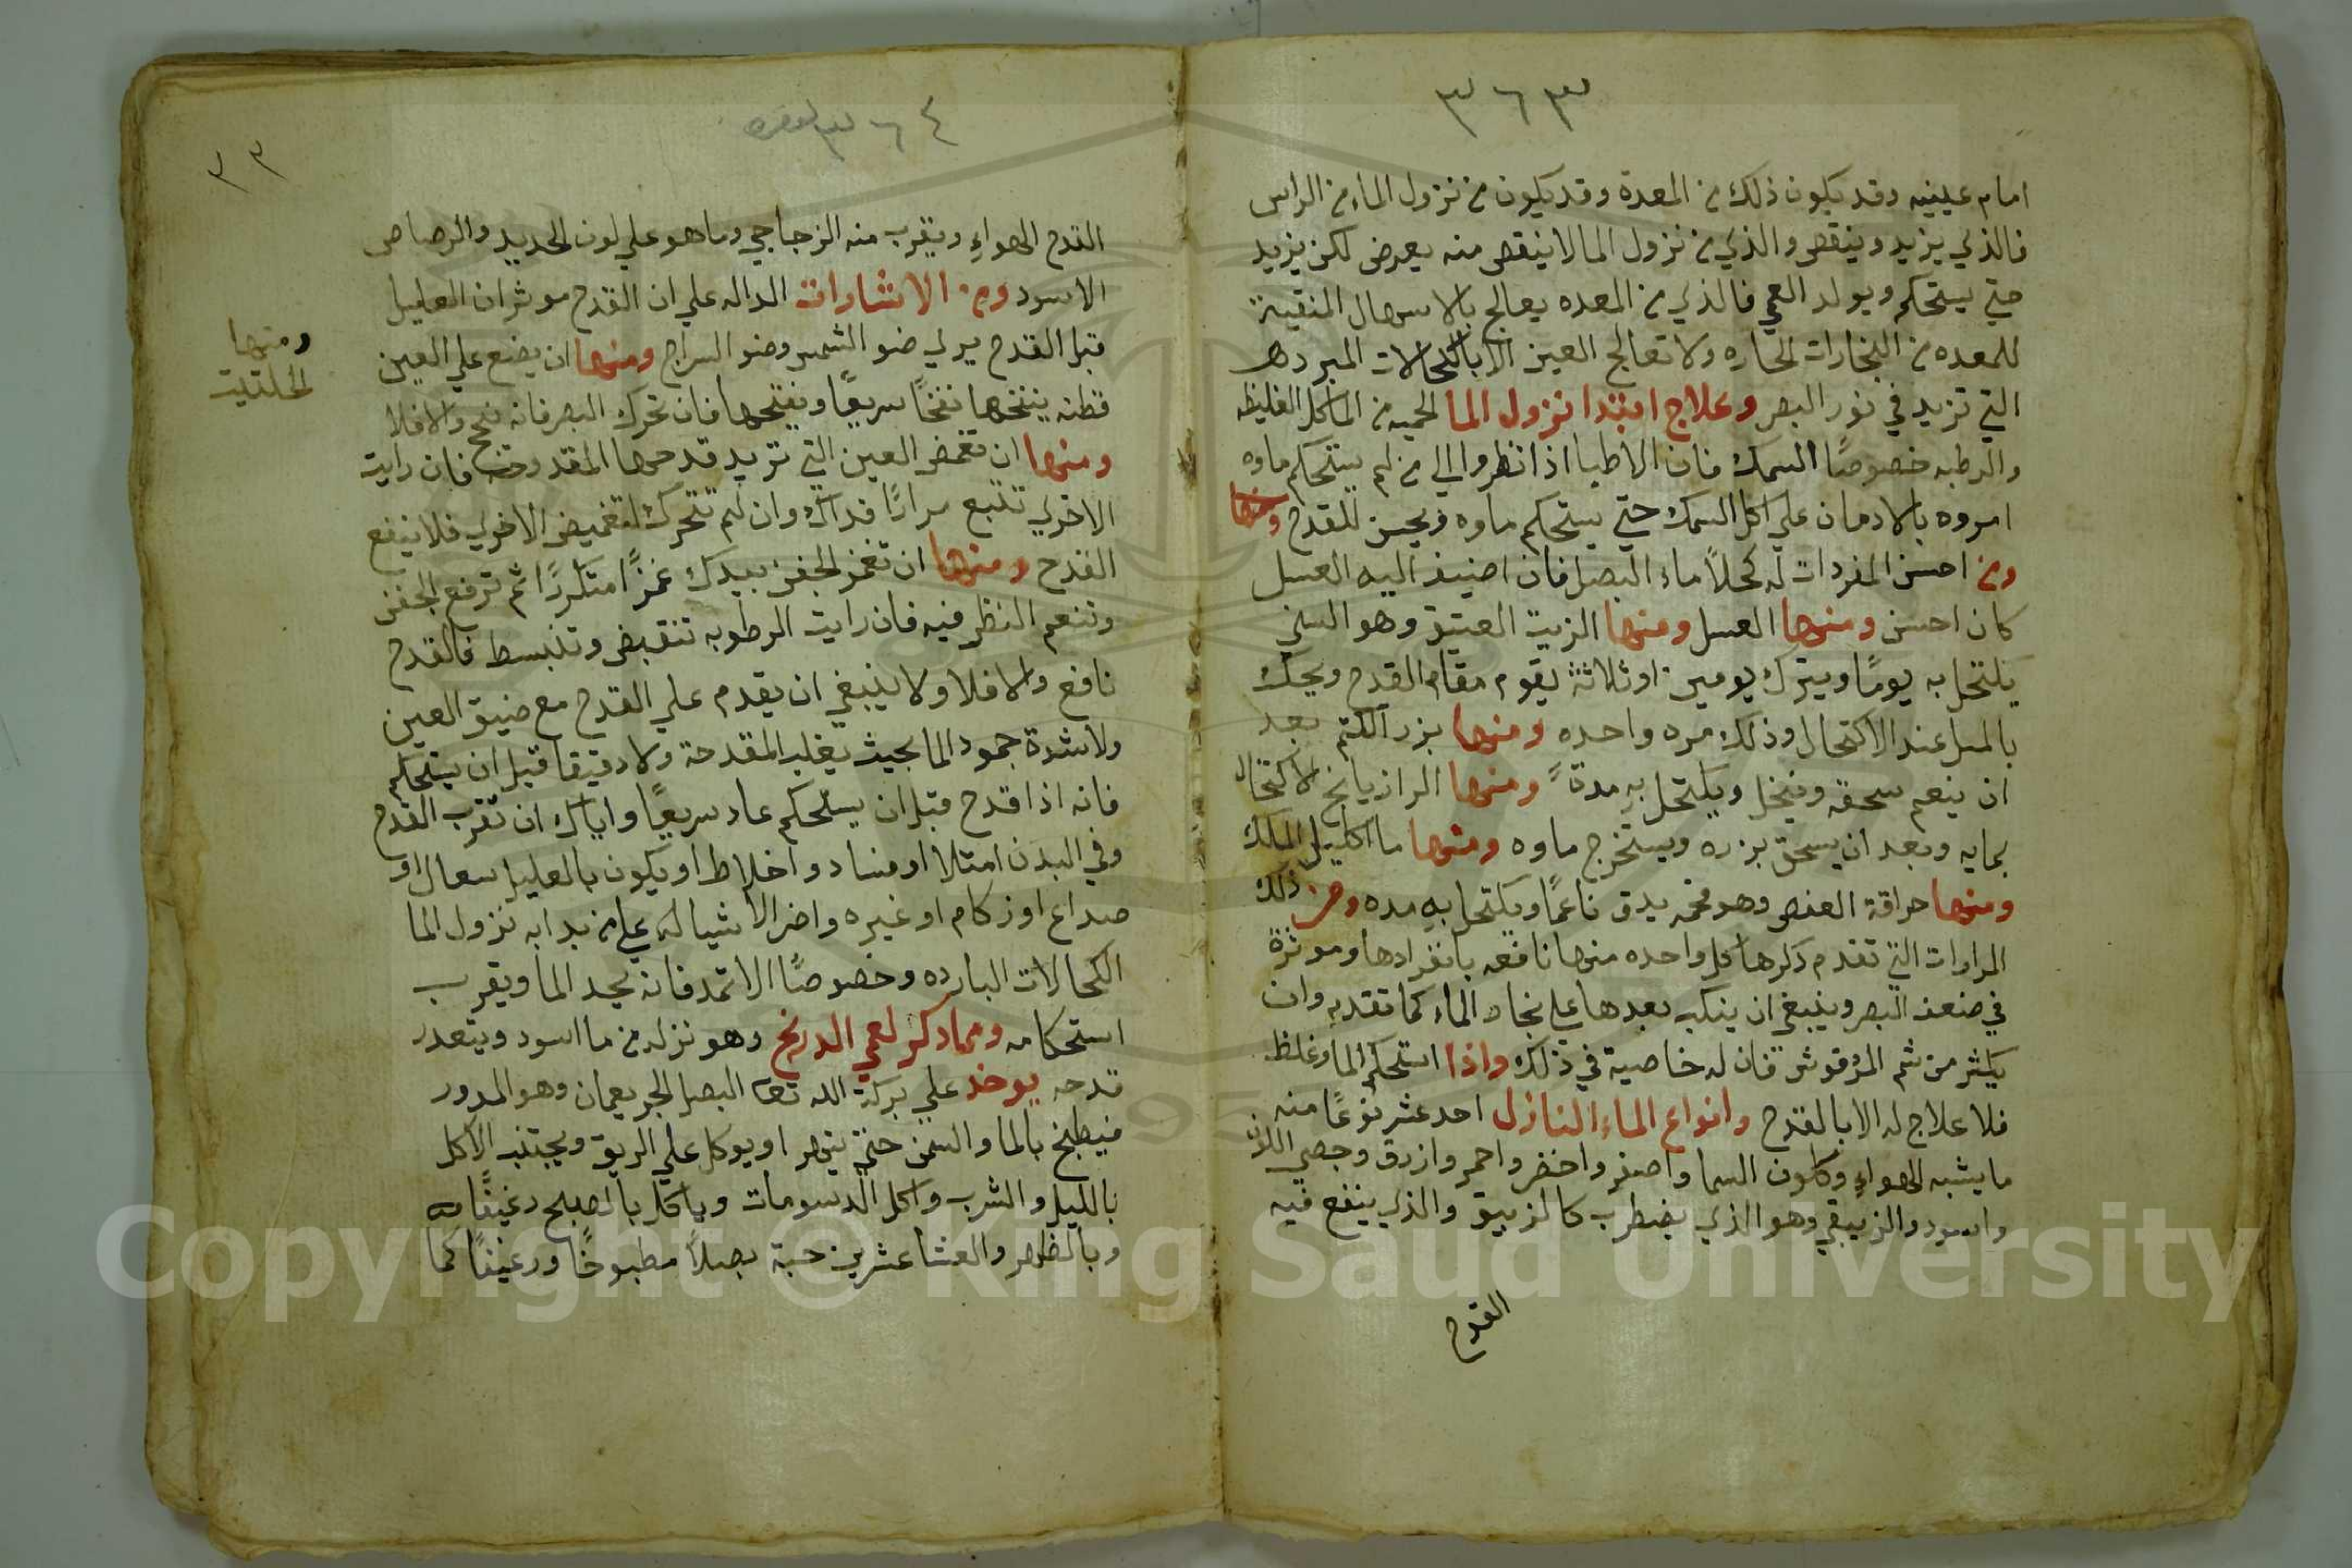 ٣٦٣
امام عينيه وقد يكون ذلك من المعدة وقد يكون من نزول الماء من الراس
فالذي يزيد وينقص والذي من نزول الما لا ينقص منه يعرض لكن يزيد
حتي يستحكم ويولد العمي فالذي من المعده يعالج بالاسهال المنقية
للمعده من البخارات الحاره ولا تعالج العين الا بالكحالات المبرده
التي تزيد في نور البصر وعلاج ابتدا نزول الما الحميه من الماكل الغليظه
والرطبه خصوصًا السمك فان الاطبا اذا نظروا الي من لم يستحكم ماوه
امروه بالادمان علي اكل السمك حتي يستحكم ماوه ويحسن للقدح ومنها
ومن احسن المفردات له كحلاً ماء البصل فان اضيف اليه العسل
كان احسن ومنها العسل ومنها الزيت العتيق وهو السني
يكتحل به يومًا ويترك يومين او ثلاثة يقوم مقام القدح ويحك
بالميل عند الاكتحال وذلك مره واحده ومنها بزر الكتم بعد
ان ينعم سحقه وينخل ويكتحل به مدةً ومنها الرازيانج الاكتحال
بمايه وبعد ان يسحق بزره ويستخرج ماوه ومنها ما اكليل الملك
ومنها حراقة العفص وهو فحمه يدق ناعمًا ويكتحل به مده ومن ذلك
المرارات التي تقدم ذكرها كل واحده منها نافعه بانفرادها وموثرة
في ضعف البصر وينبغي ان ينكب بعدها علي بخار الماء كما تقدم وان
يكثر من شم المرزقوش فان له خاصية في ذلك واذا استحكم الما وغلظ
فلا علاج له الا بالقدح وانواع الماء النازل احد عشر نوعًا منه
ما يشبه الهواء وكلون السما واصفر واخضر واحمر وازرق وجصي اللون
واسود والزيبقي وهو الذي يضطرب كالزيبق والذي ينفع فيه
القدح
٣٦٤
٣٣
القدح الهواء ويقرب منه الزجاجي وما هو علي لون الحديد والرصاص
الاسود ومن الاشارات الداله علي ان القدح موثر ان العليل
قبل القدح يري ضو الشمس وضو السراج ومنها ان يضع علي العين
قطنه ينفخها نفخًا سريعًا ويفتحها فان تحرك البصر فانه ينجح والا فلا
ومنها ان تغمض العين التي تريد قدحها المقدوحة فان رايت
الاخري تتبع مرارًا فذاك وان لم تتحرك لتغميض الاخري فلا ينفع
القدح ومنها ان تغمز الجفن بيدك غمزًا متكررًا ثم ترفع الجفن
وتنعم النظر فيه فان رايت الرطوبه تنقبض وتنبسط فالقدح
نافع والا فلا ولا ينبغي ان يقدم علي القدح مع ضيق العين
ولا شدة جمود الما بحيث يغلب المقدحة ولا دقيقا قبل ان يستحكم
فانه اذا قدح قبل ان يستحكم عاد سريعًا واياك ان تقرب القدح
وفي البدن امتلا او فساد واخلاط او يكون بالعليل سعال او
صداع او زكام او غيره واضر الاشيا له علي من بدا به نزول الما
الكحالات البارده وخصوصًا الاثمد فانه يجمد الما ويقرب
استحكامه ومما ذكر لعمي الدرنج وهو نزله من ما اسود ويتعدر
قدحه يوخد علي بركة الله تعا البصل الجريعمان وهو المدور
فيطبخ بالما والسمن حتي ينهرا ويوكل علي الريق ويجتنب الاكل
بالليل والشرب واكل الدسومات وياكل بالصبح رغيفًا منه
وبالظهر والعشا عشرين حبة بصلاً مطبوخًا ورغيفًا كما
ومنها
الحلتيت
Copyright © King Saud University